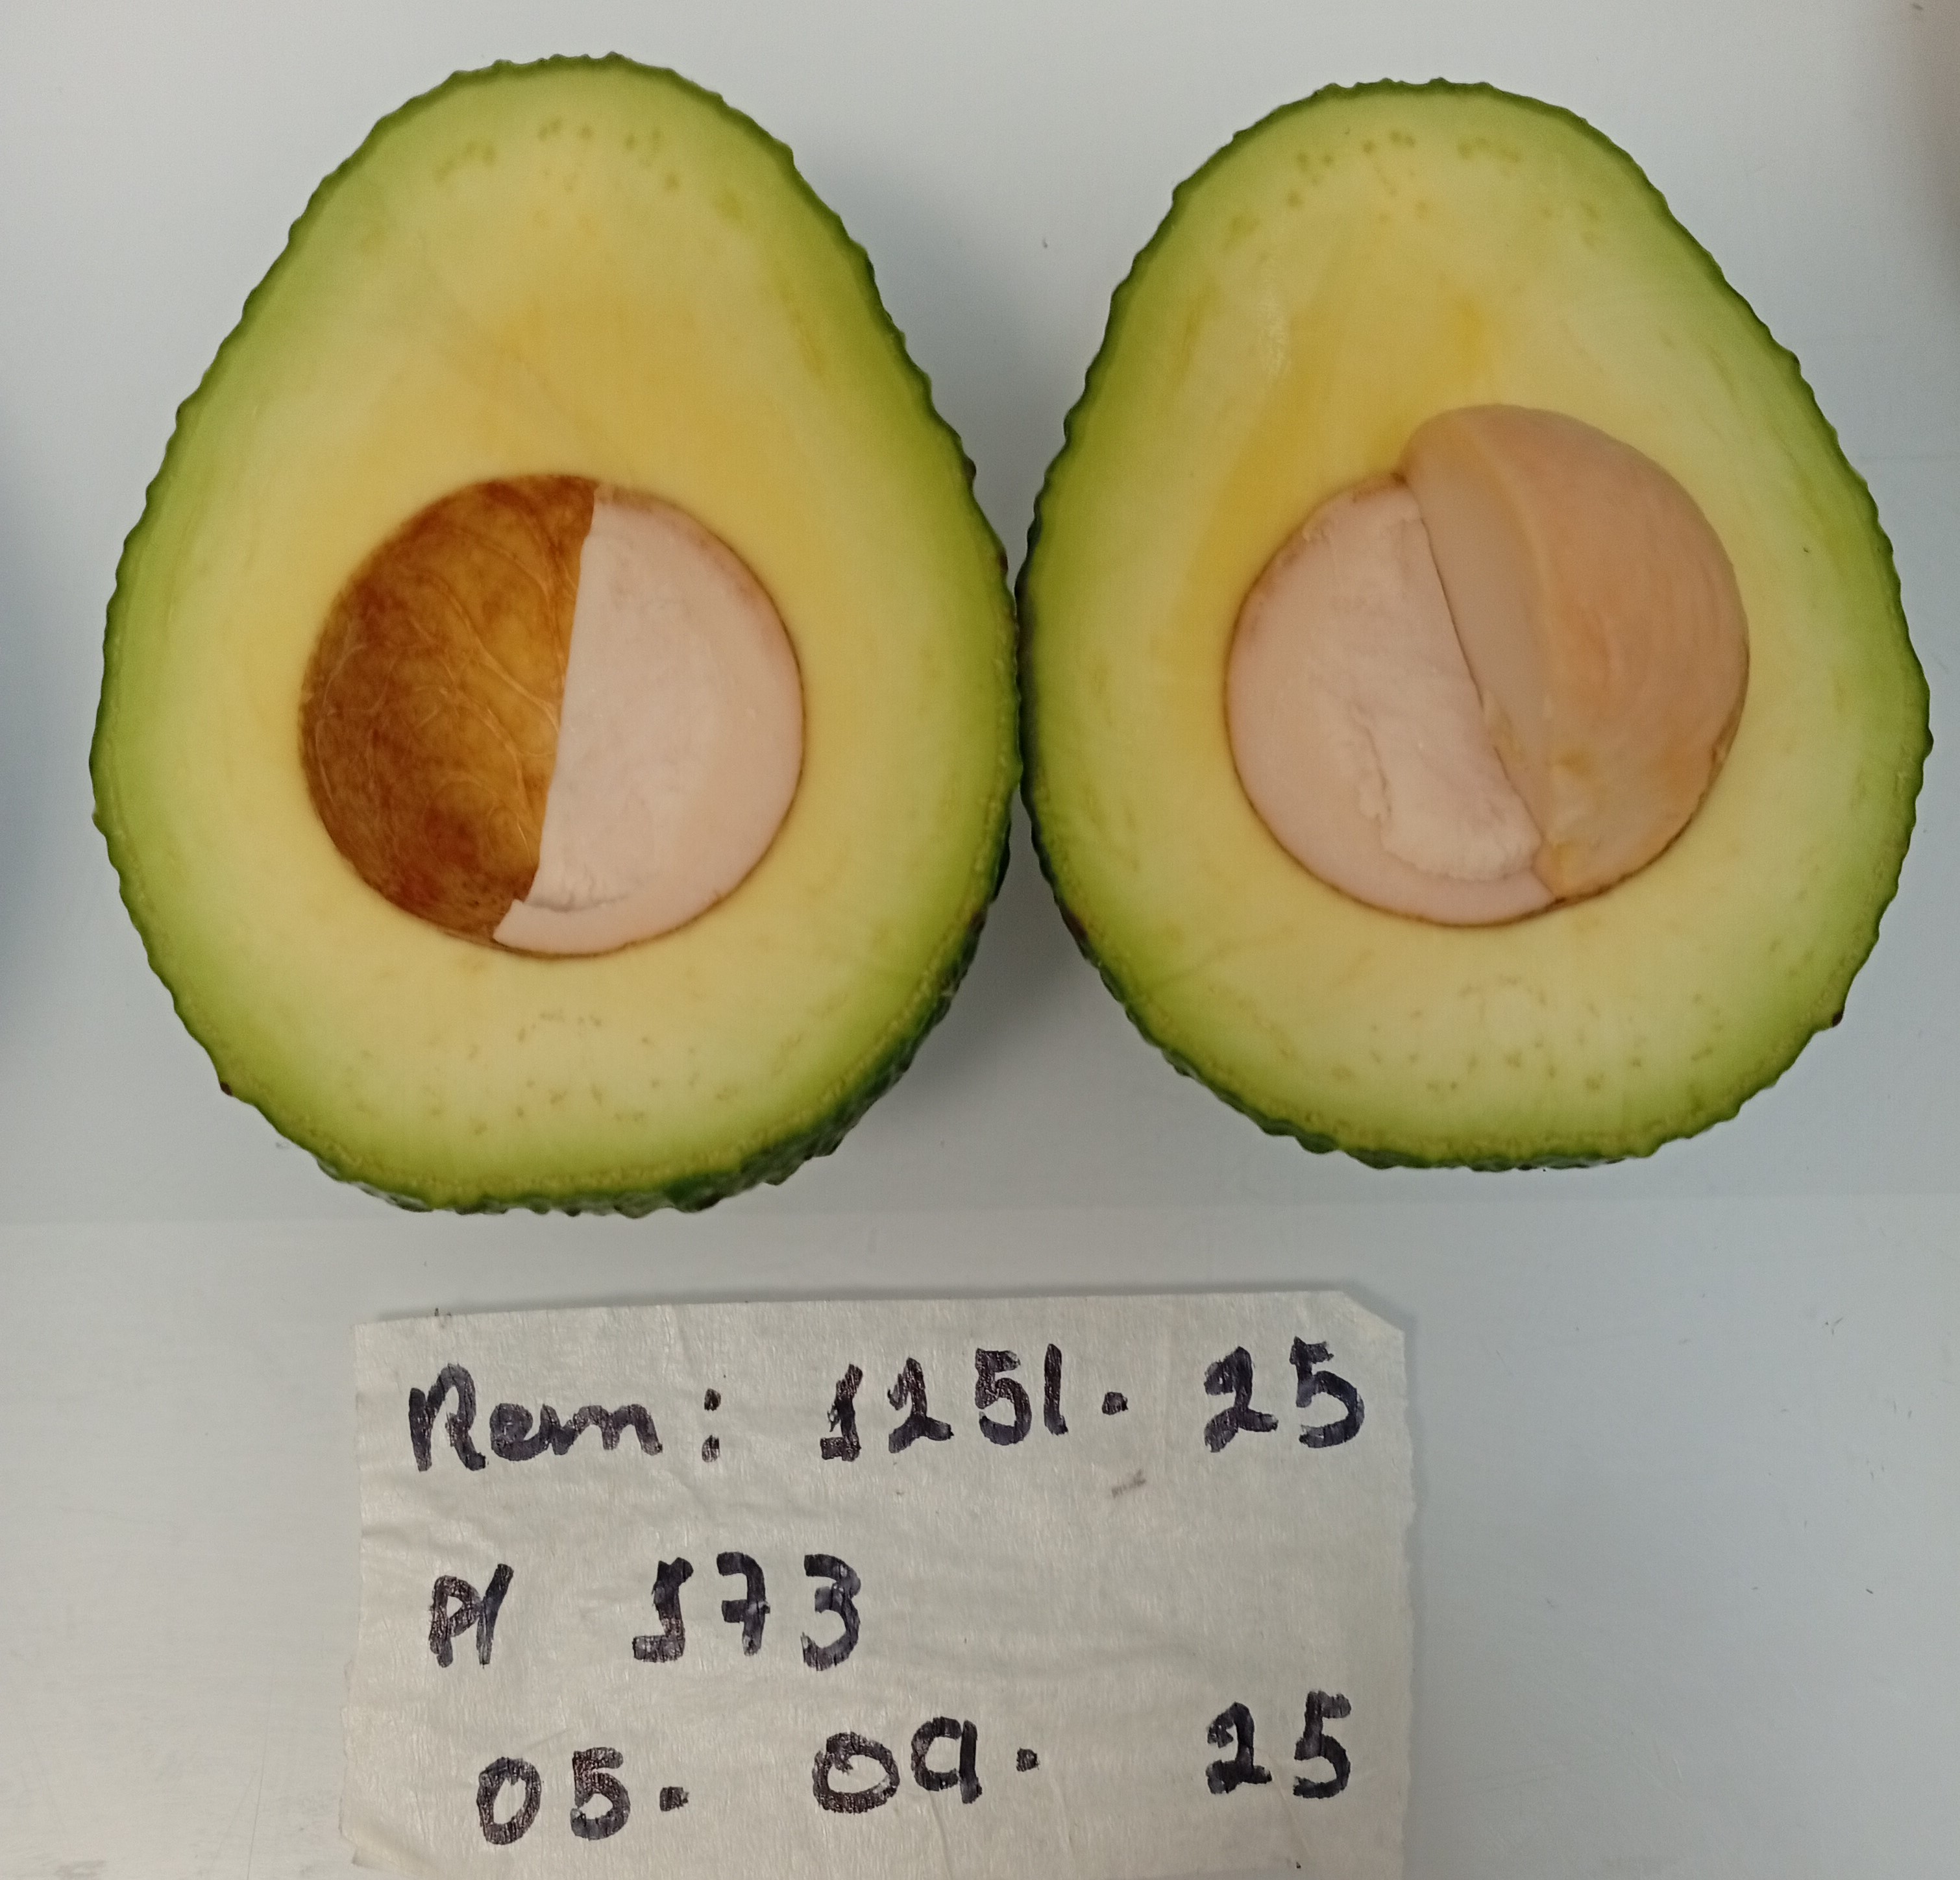 Rem: 1251. 25
Pl 173
05. 09. 25